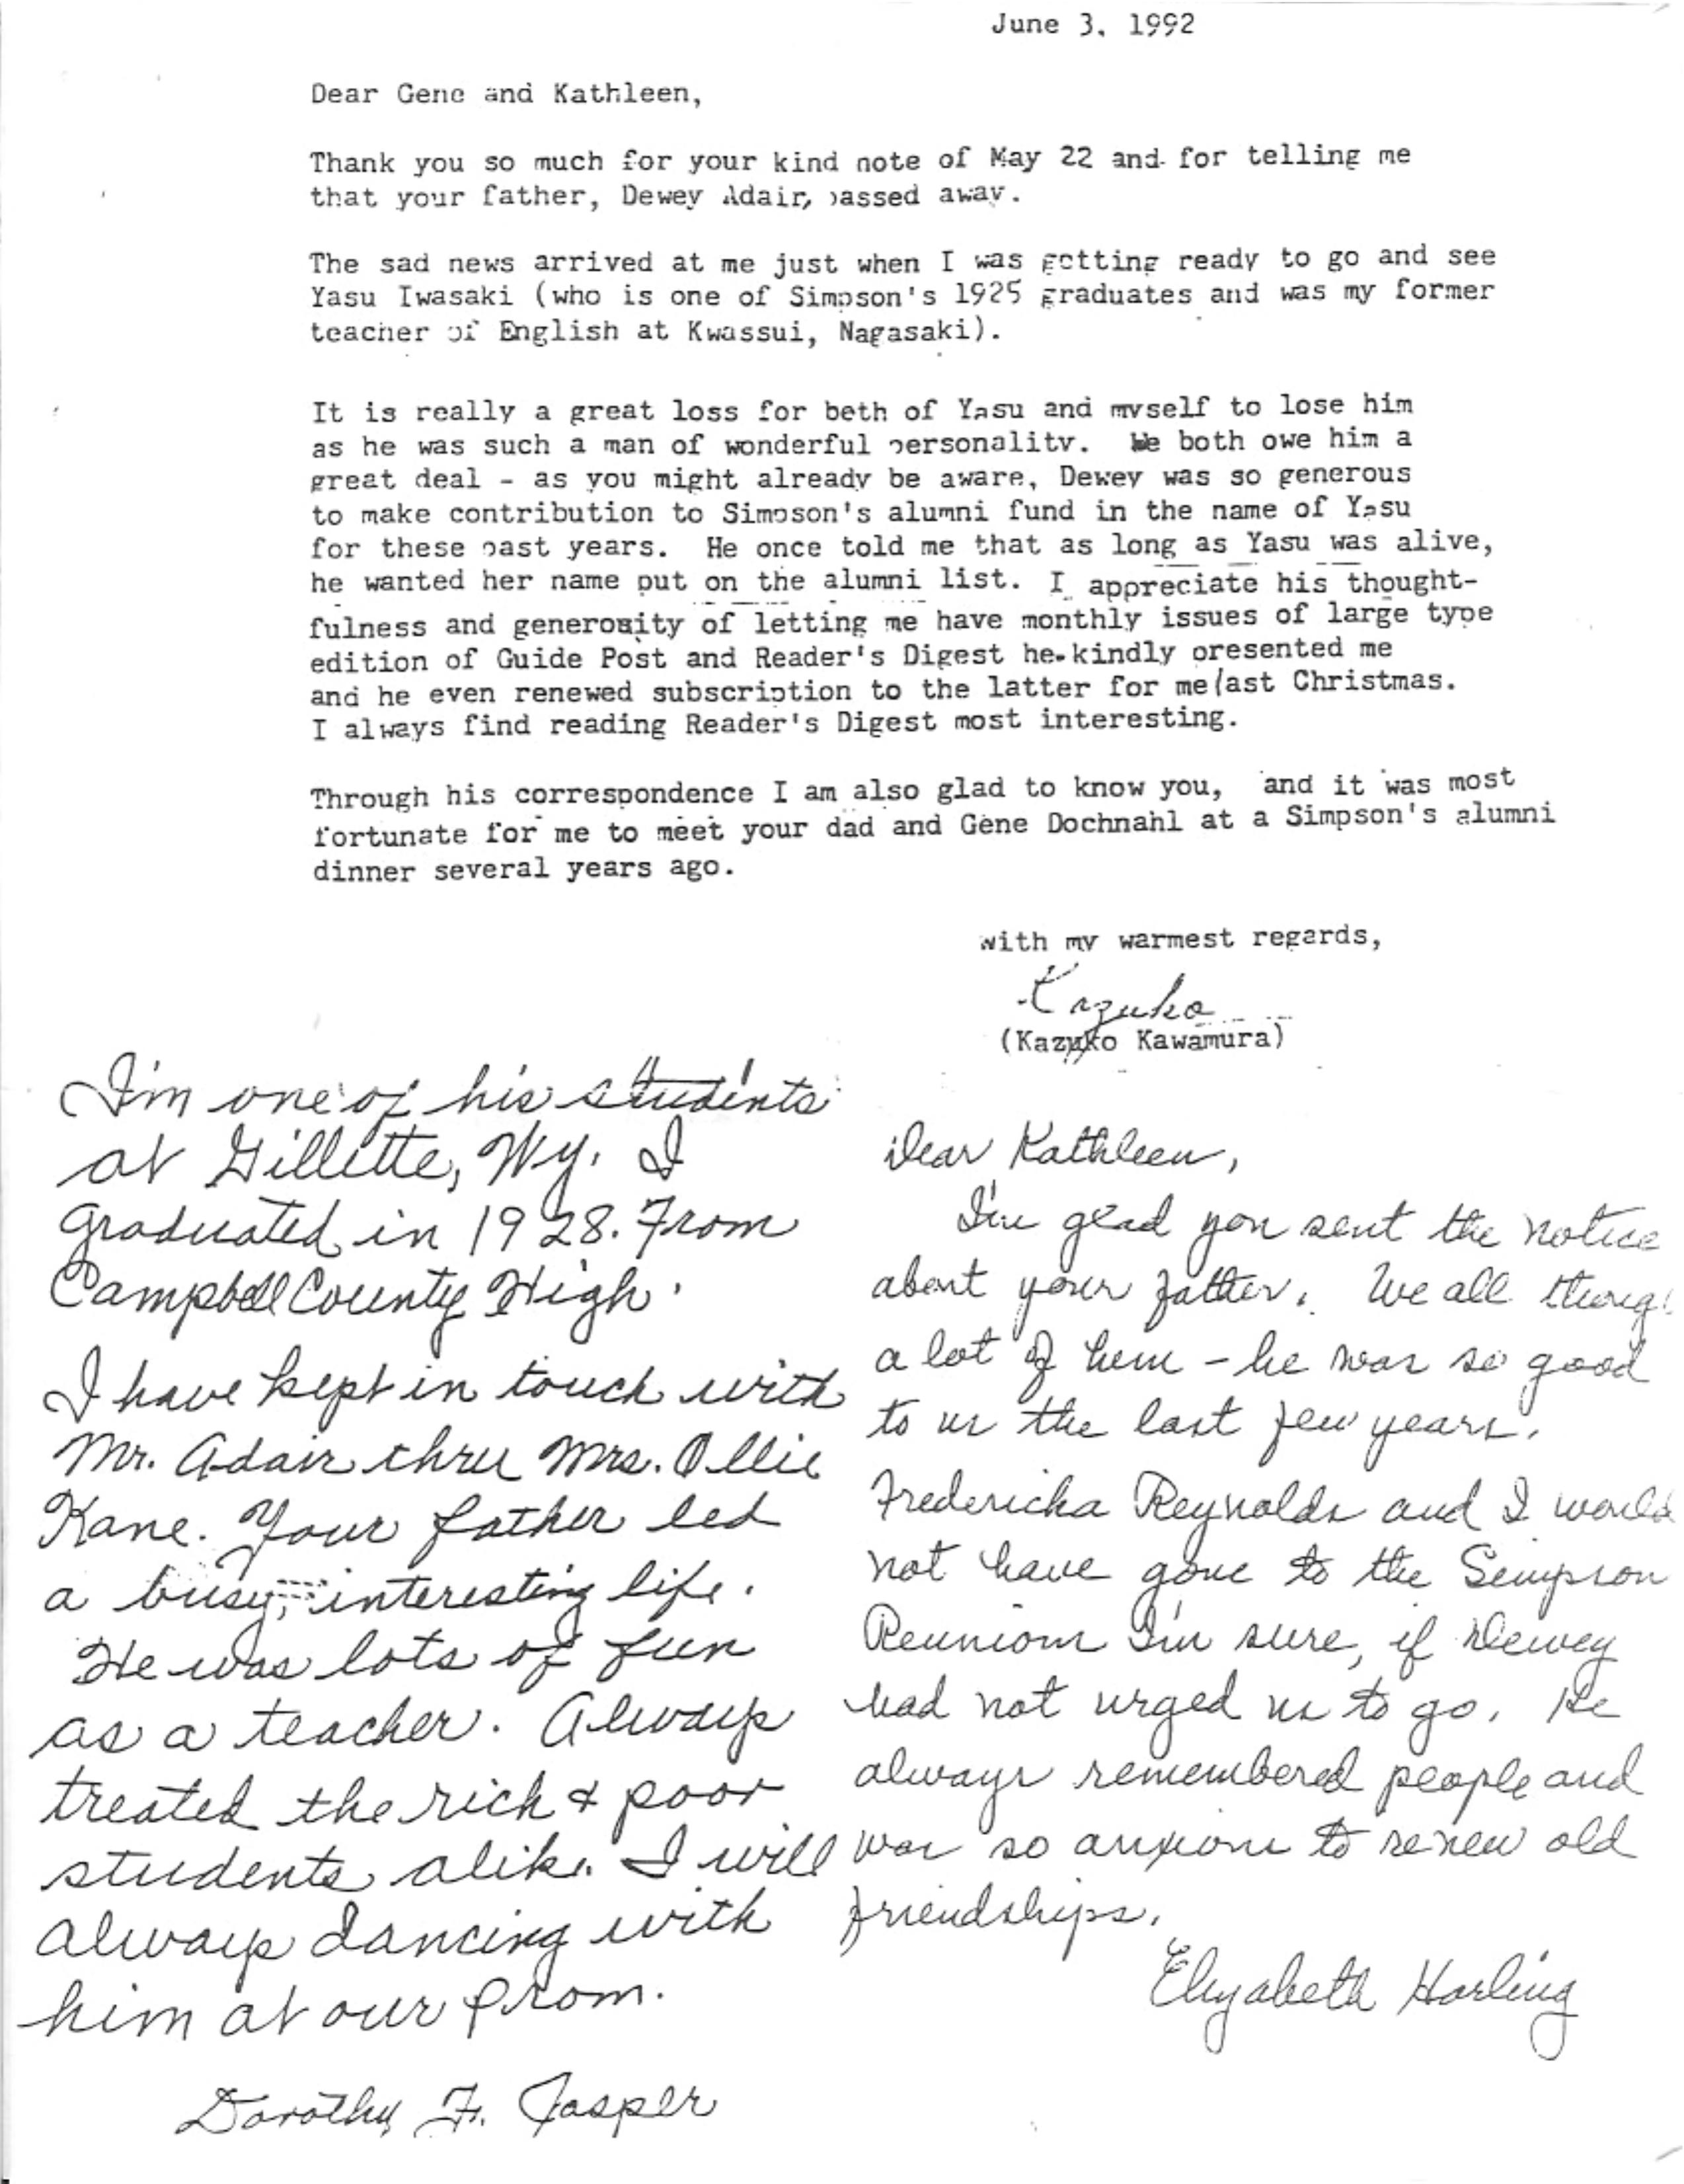 June 3, 1992
Dear Gene and Kathleen,
Thank you so much for your kind note of May 22 and for telling me
that your father, Dewey Adair, passed away.
The sad news arrived at me just when I was getting ready to go and see
Yasu Iwasaki (who is one of Simpson's 1925 graduates and was my former
teacher of English at Kwassui, Nagasaki).
It is really a great loss for beth of Yasu and myself to lose him
as he was such a man of wonderful personality. We both owe him a
great deal - as you might already be aware, Dewey was so generous
to make contribution to Simpson's alumni fund in the name of Yasu
for these past years. He once told me that as long as Yasu was alive,
he wanted her name put on the alumni list. I appreciate his thought-
fulness and generosity of letting me have monthly issues of large type
edition of Guide Post and Reader's Digest he kindly presented me
and he even renewed subscription to the latter for me last Christmas.
I always find reading Reader's Digest most interesting.
Through his correspondence I am also glad to know you, and it was most
fortunate for me to meet your dad and Gene Dochnahl at a Simpson's alumni
dinner several years ago.
with my warmest regards,
Kazuko
(Kazuko Kawamura)
I'm one of his students
at Gillette, Wy. I
graduated in 1928. From
Campbell County High.
I have kept in touch with
Mr. Adair thru Mrs. Ollie
Kane. Your father led
a busy, interesting life.
He was lots of fun
as a teacher. Always
treated the rich & poor
students alike. I will
always dancing with
him at our prom.
Dorothy F. Jasper
Dear Kathleen,
I'm glad you sent the notice
about your father. We all
a lot of him - he was so good
to us the last few years.
Fredericka Reynolds and I would
not have gone to the Simpson
Reunion I'm sure, if Dewey
had not urged us to go. He
always remembered people and
was so anxious to renew old
friendships.
Elizabeth Harling